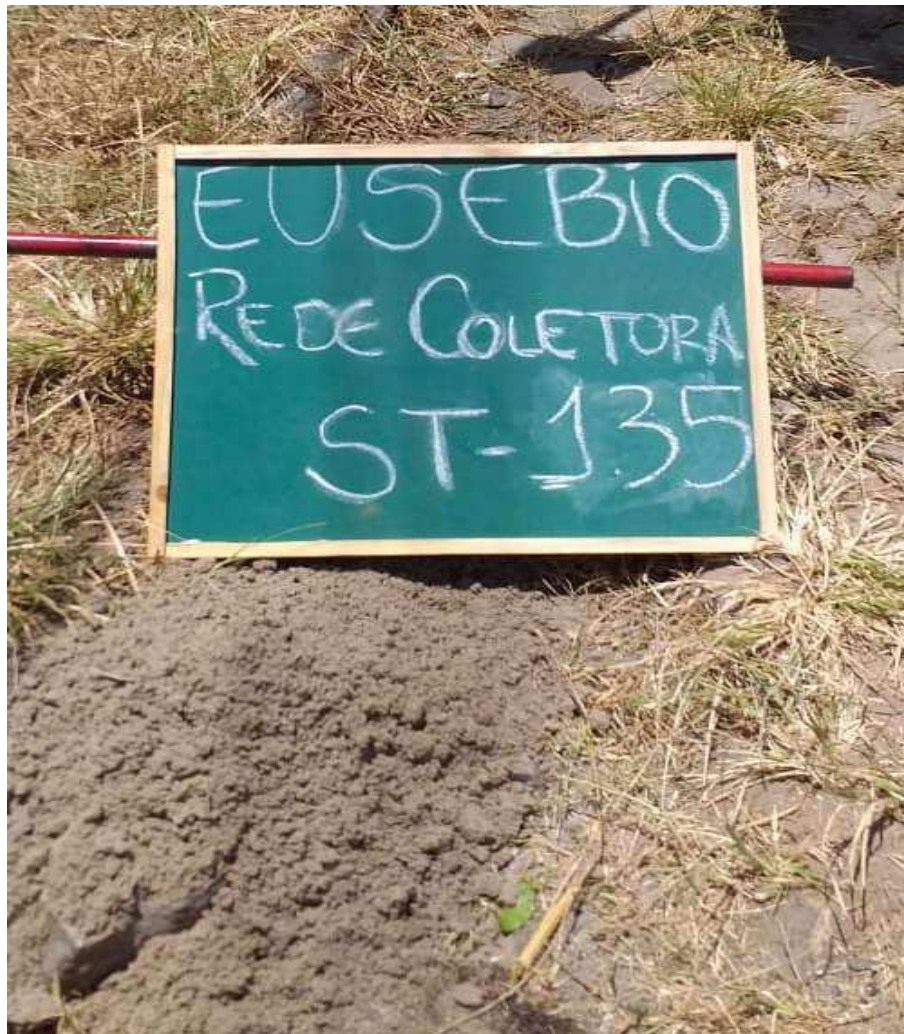 EUSEBiO
REDE COLETORA
ST-135